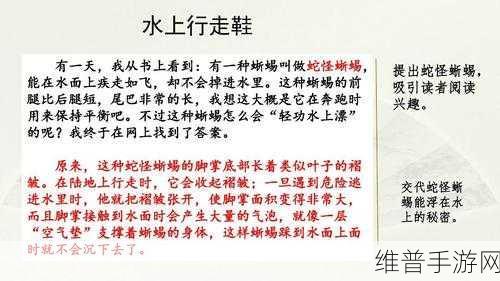 水上行走鞋
有一天，我从书上看到：有一种蜥蜴叫做蛇怪蜥蜴，
能在水面上疾走如飞，却不会掉进水里。这种蜥蜴的前
腿比后腿短，尾巴非常的长，我想这大概是它在奔跑时
用来保持平衡吧。不过这种蜥蜴怎么会“轻功水上漂”
的呢？我终于在网上找到了答案。
原来，这种蛇怪蜥蜴的脚掌底部长着类似叶子的褶
皱。在陆地上行走时，它会收起褶皱；一旦遇到危险逃
进水里时，他就把褶皱张开，使脚掌面积变得非常大，
而且脚掌接触到水面时会产生大量的气泡，就像一层
“空气垫”支撑着蜥蜴的身体，这样蜥蜴踩到水面上面
时就不会沉下去了。
提出蛇怪蜥蜴，
吸引读者阅读
兴趣。
交代蛇怪蜥
蜴能浮在水
上的秘密。
维普手游网